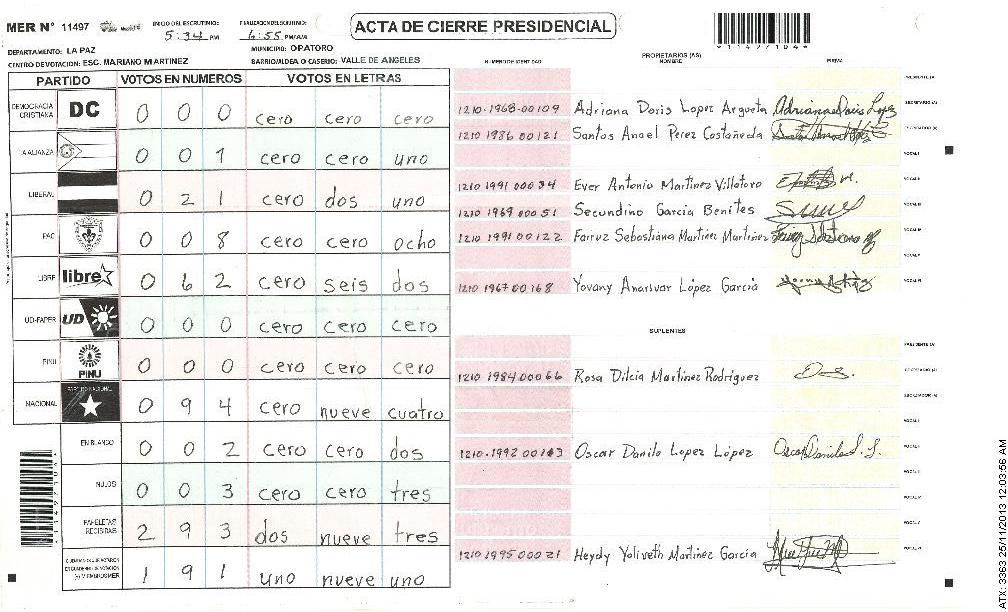 MER N° 11497
INICIO DEL ESCRUTINIO: 5:34 PM
FINALIZACION ESCRUTINIO: 6:55 PM/AM
ACTA DE CIERRE PRESIDENCIAL
DEPARTAMENTO: LA PAZ
MUNICIPIO: OPATORO
CENTRO DE VOTACION: ESC. MARIANO MARTINEZ
BARRIO/ALDEA O CASERIO: VALLE DE ANGELES
PARTIDO VOTOS EN NUMEROS VOTOS EN LETRAS
DEMOCRACIA CRISTIANA DC 0 0 0 cero cero cero
LA ALIANZA 0 0 1 cero cero uno
LIBERAL 0 2 1 cero dos uno
PAC 0 0 8 cero cero ocho
LIBRE libre 0 6 2 cero seis dos
UD-FAPER UD 0 0 0 cero cero cero
PINU PINU 0 0 0 cero cero cero
NACIONAL PARTIDO NACIONAL 0 9 4 cero nueve cuatro
EN BLANCO 0 0 2 cero cero dos
NULOS 0 0 3 cero cero tres
PAPELETAS RECIBIDAS 2 9 3 dos nueve tres
1 9 1 uno nueve uno
NUMERO DE IDENTIDAD
PROPIETARIOS (AS)
NOMBRE
FIRMA
PRESIDENTE (A)
1210-1968-00109 Adriana Doris Lopez Argueta SECRETARIO (A)
1210 1986 00121 Santos Anael Perez Castañeda ESCRUTADOR (A)
VOCAL I
1210 1991 00034 Ever Antonio Martinez Villatoro VOCAL II
1210 1969 00051 Secundino Garcia Benites VOCAL III
1210 1991 00122 Farruz Sebastiana Martinez Martinez VOCAL IV
VOCAL V
1210 1967 00168 Yovany Anarivar López Garcia VOCAL VI
SUPLENTES
PRESIDENTE (A)
1210 1984 00066 Rosa Dilcia Martinez Rodriguez SECRETARIO (A)
ESCRUTADOR (A)
VOCAL I
1210-1992 00143 Oscar Danilo Lopez López Oscar Danilo L. L. VOCAL II
VOCAL III
VOCAL IV
VOCAL V
1210 1995 00021 Heydy Yoliveth Martinez Garcia VOCAL VI
*11477104*
ATX: 3363 25/11/2013 12:03:56 AM